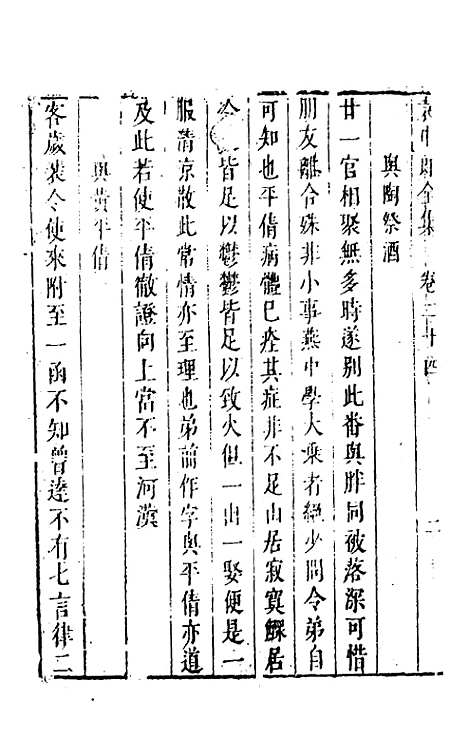 袁中郎全集 卷二十四 二
與陶祭酒
廿一官相聚無多時遂别此番與胖同被落深可惜
朋友離合殊非小事燕中學大乘者絶少問令弟自
可知也平倩病體已痊其症非不足山居寂寞鰥居
冷皆足以鬱鬱皆足以致火但一出一娶便是一
服清凉散此常情亦至理也弟前作字與平倩亦道
及此若使平倩徹證向上當不至河漢
與黃平倩
客歲裴令使來附至一函不知曾達不有七言律二